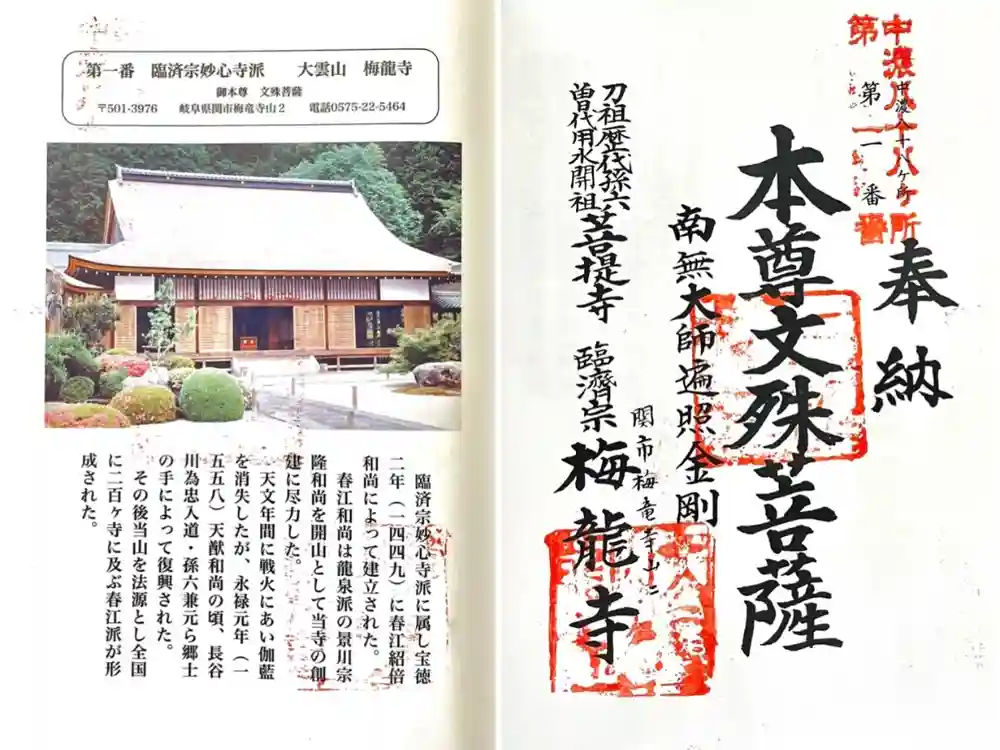 第一番　臨済宗妙心寺派　　大雲山　梅龍寺
御本尊　文殊菩薩
〒501-3976　岐阜県関市梅竜寺山2　電話0575-22-5464
臨済宗妙心寺派に属し宝徳
二年（一四四九）に春江紹倍
和尚によって建立された。
春江和尚は龍泉派の景川宗
隆和尚を開山として当寺の創
建に尽力した。
天文年間に戦火にあい伽藍
を消失したが、永禄元年（一
五五八）天猷和尚の頃、長谷
川為忠入道・孫六兼元ら郷士
の手によって復興された。
その後当山を法源とし全国
に二百ヶ寺に及ぶ春江派が形
成された。
中濃八十八ヶ所
第一番
中濃八十八ヶ所
第一番
奉納
本尊文殊菩薩
南無大師遍照金剛
関市梅竜寺山二
刀祖歴代孫六
曽代用水開祖
菩提寺
臨濟宗
梅龍寺